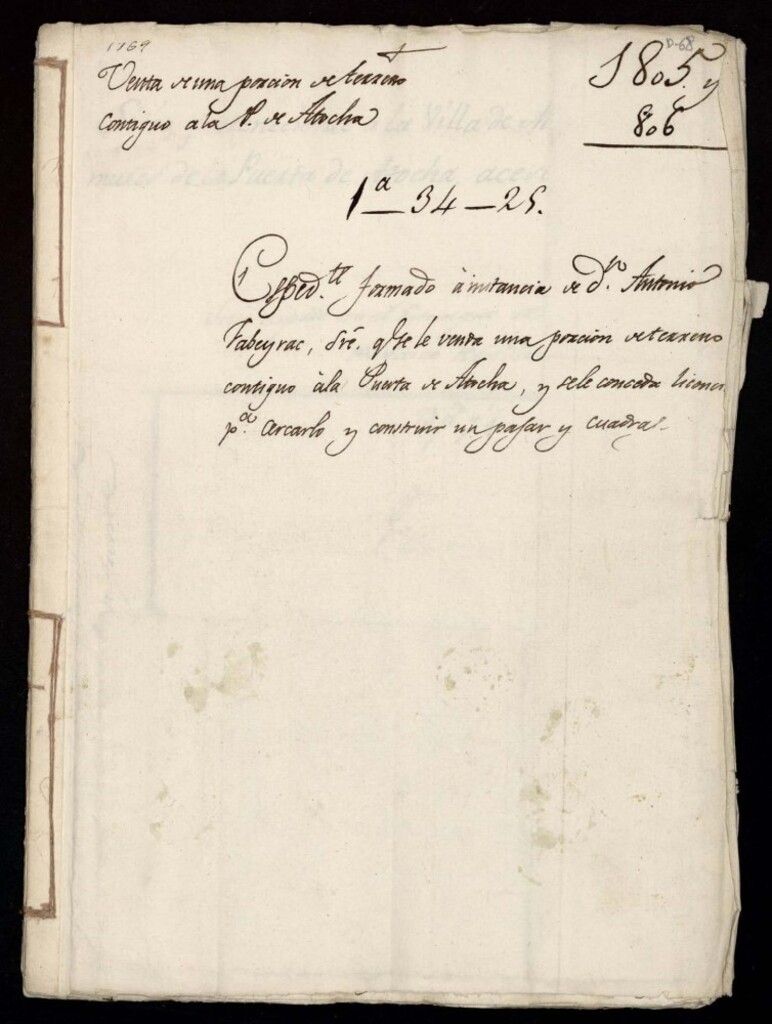 1769
D-68
Venta de una porcion de terreno
contiguo a la P. de Atocha
1805. y
806
1ª — 34 — 25.
Esped.te formado à instancia de d.n Antonio
Fabeyrac, sre. q.e se le venda una porcion de terreno
contiguo à la Puerta de Atocha, y se le conceda licenc
p.a cercarlo y construir un pajar y cuadras.